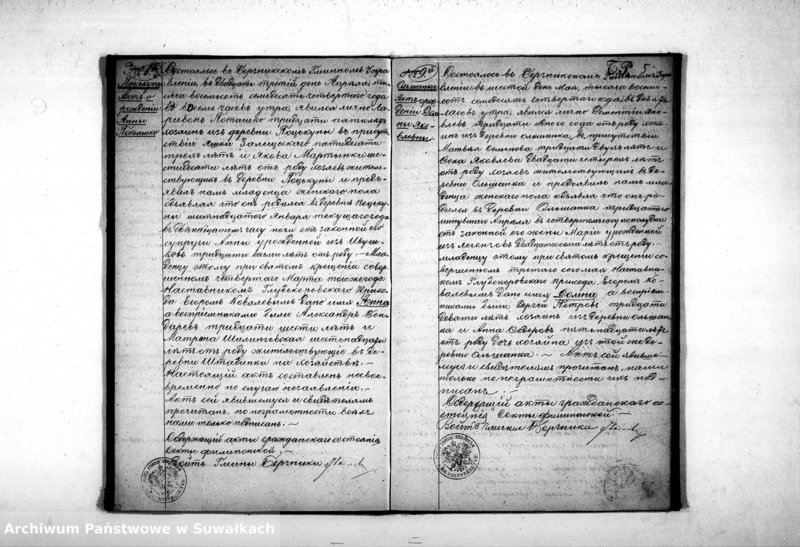 № 8й
Поцкуны
Актъ о
рожденiи
Анны
Поташко
Состоялось въ Бержникскомъ Гминномъ Упра
вленiи въ двадцать третiй день Апрѣля, ты
сяча восемьсотъ семьдесятъ четвертаго года
въ часовъ утра, явился лично Ла
рiвонъ Поташко тридцати пяти лѣтъ
хозяинъ изъ деревни Поцкуны въ присут
ствiи Яшки пятидесяти
трехъ лѣтъ и Якова Мартынки ше
стидесяти лѣтъ отъ роду хозяевъ житель
ствующихъ въ деревни Поцкуны и предъ
явилъ намъ младенца женскаго пола
объявляя что онъ родился въ деревнѣ Поцку
ны шестнадцатаго Января текущаго года
въ двѣнадцатомъ часу ночи отъ законной его
супруги Анны урожденной изъ
тридцати лѣтъ отъ роду. — Мла
денцу этому при святомъ крещенiи совер
шенномъ четвертаго Марта того же года
Наставникомъ Глубокоровскаго Прихо
да Егоромъ Ковалевымъ дано имя Анна
а воспрiемниками были Александръ Бон
даревъ тридцати шести лѣтъ и
Матрена шестнадцати
лѣтъ отъ роду жительствующiе въ де
ревни на хозяйствѣ.
Настоящiй актъ составленъ несвое
временно по случаю незаявленiя. —
Актъ сей явившемуся и свидѣтелямъ
прочитанъ, по неграмотности всѣхъ
нами только подписанъ. —
Содержащiй акты гражданскаго состоянiя
Секты филипонской
Войтъ Гмины Бержники
№ 9й
Ольшанка
Актъ о ро
жденiи До
мны Яко
влевны
5
Состоялось въ Бержникскомъ Гминномъ Упра
вленiи въ шестой день Мая, тысяча восемь
сотъ семьдесятъ четвертаго года въ девять
часовъ утра, явился лично Дементiй Яко
влевъ тридцати лѣтъ отъ роду хозя
инъ изъ деревни Ольшанка, въ присутствiи
Матвѣя Семенова тридцати двухъ лѣтъ и
Фоки Яковлева двадцати четырехъ лѣтъ
отъ роду хозяевъ жительствующихъ въ де
ревни Ольшанка и предъявилъ намъ мла
денца женскаго пола объявляя что онъ ро
дился въ деревни Ольшанка тридцатаго
минувшаго Апрѣля въ четвертомъ часу пополудни
отъ законной его жены Марiи урожденной
изъ двадцати лѣтъ отъ роду.
младенцу этому при святомъ крещенiи со
вершенномъ третьяго сего мая Наставни
комъ Глубокоровскаго прихода Егоромъ Ко
валевымъ дано имя Домна а воспрiем
никами были Петровъ тридцати
девяти лѣтъ хозяинъ изъ деревни Ольшан
ка и Анна пятьнадцати лѣтъ
отъ роду дочь хозяина изъ той же де
ревни Ольшанка. — Актъ сей явивше
муся и свидѣтелямъ прочитанъ, нами
только по неграмотности ихъ под
писанъ. —
Содержащiй акты гражданскаго со
стоянiя Секты филипонской. —
Войтъ Гмины Бержники
Archiwum Państwowe w Suwałkach